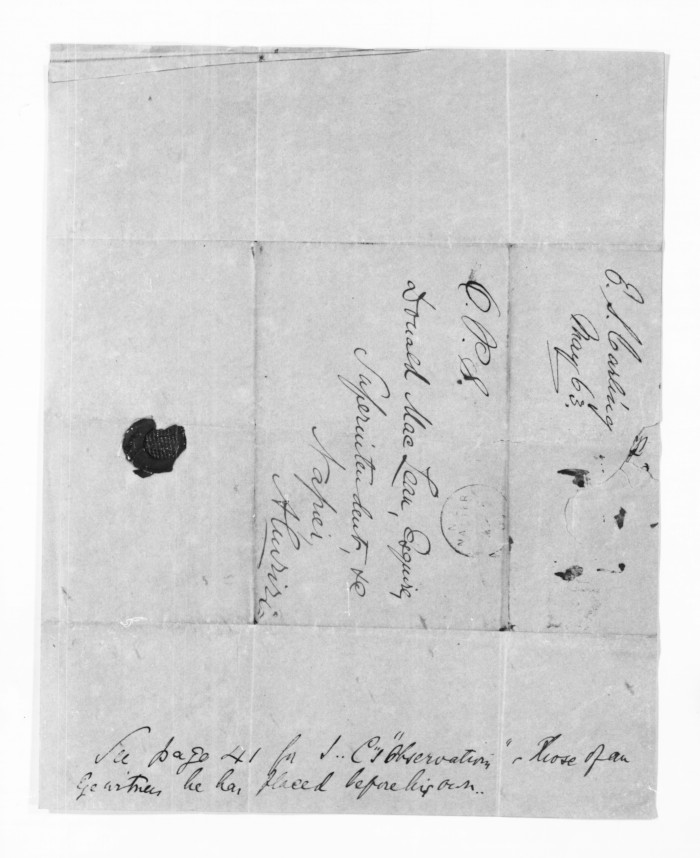 E. S. Curling
May 63.
O. P. S.
Donald Mac Lean, Esquire,
Superintendent, &c
Napier,
Ahuriri.
See page 41 for J.. C's "Observations", Those of an
Eyewitness he has placed before his own..